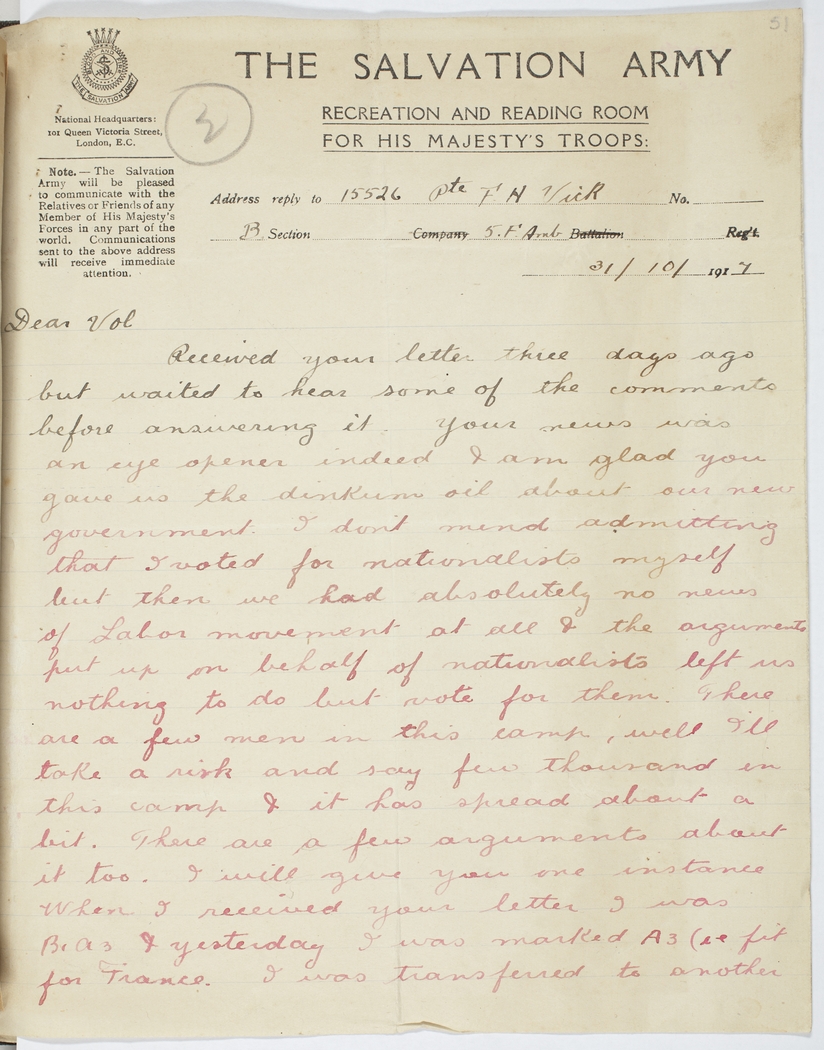 51
THE SALVATION ARMY
THE SALVATION ARMY
National Headquarters:
101 Queen Victoria Street,
London, E.C.
RECREATION AND READING ROOM
FOR HIS MAJESTY'S TROOPS:
Note. — The Salvation
Army will be pleased
to communicate with the
Relatives or Friends of any
Member of His Majesty's
Forces in any part of the
world. Communications
sent to the above address
will receive immediate
attention.
Address reply to 15526 Pte F H Vick No.
B Section Company 5. Fd Amb Battalion Reg't.
31/10/1917
Dear Vol
Received your letter three days ago
but waited to hear some of the comments
before answering it. Your news was
an eye opener indeed & am glad you
gave us the dinkum oil about our new
government. I don't mind admitting
that I voted for nationalists myself
but then we had absolutely no news
of Labor movement at all & the arguments
put up on behalf of nationalists left us
nothing to do but vote for them. There
are a few men in this camp, well I'll
take a risk and say few thousand in
this camp & it has spread about a
bit. There are a few arguments about
it too. I will give you one instance
When I received your letter I was
B1A3 & yesterday I was marked A3 (ie fit
for France. I was transferred to another